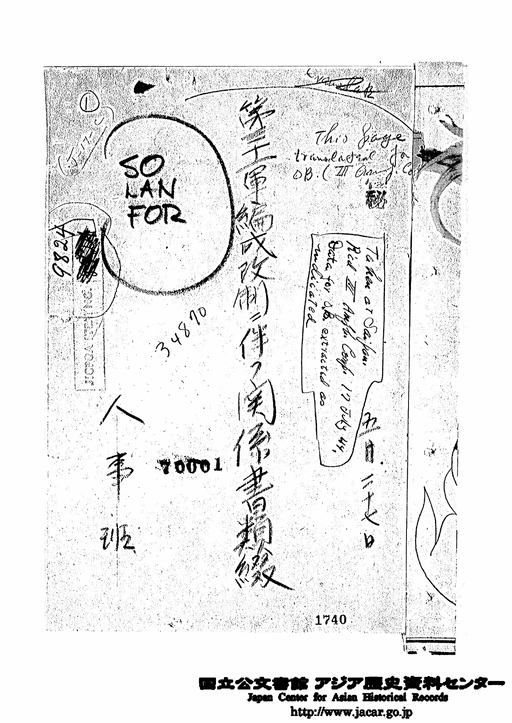 ①
(Jic 2)
SO
LAN
FOR
This page
translated for
OB. (III
秘
Taken at Saipan
Rcd III Amph Corps 17 July 44,
Data for OB extracted as
indicated
五月二十七日
第三十一軍編成改制ニ伴フ関係書類綴
9824
34870
70001
人事班
1740
国立公文書館 アジア歴史資料センター
Japan Center for Asian Historical Records
http://www.jacar.go.jp